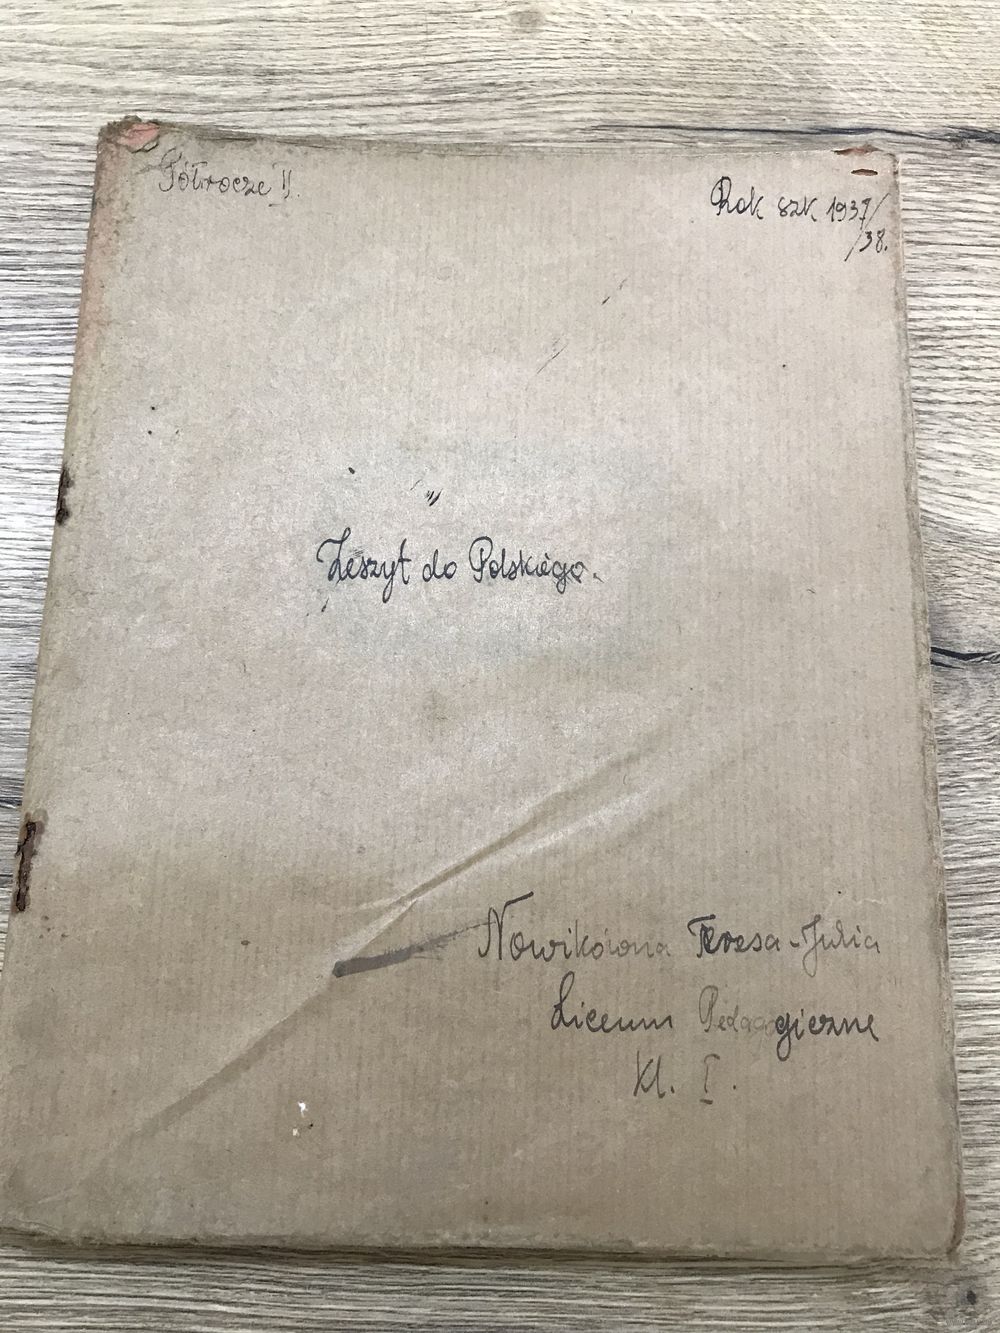 Półrocze II.
Rok szk 1937/
/38.
Zeszyt do Polskiego.
Nowikówna Teresa-Julia
Liceum Pedagogiczne
Kl. I.